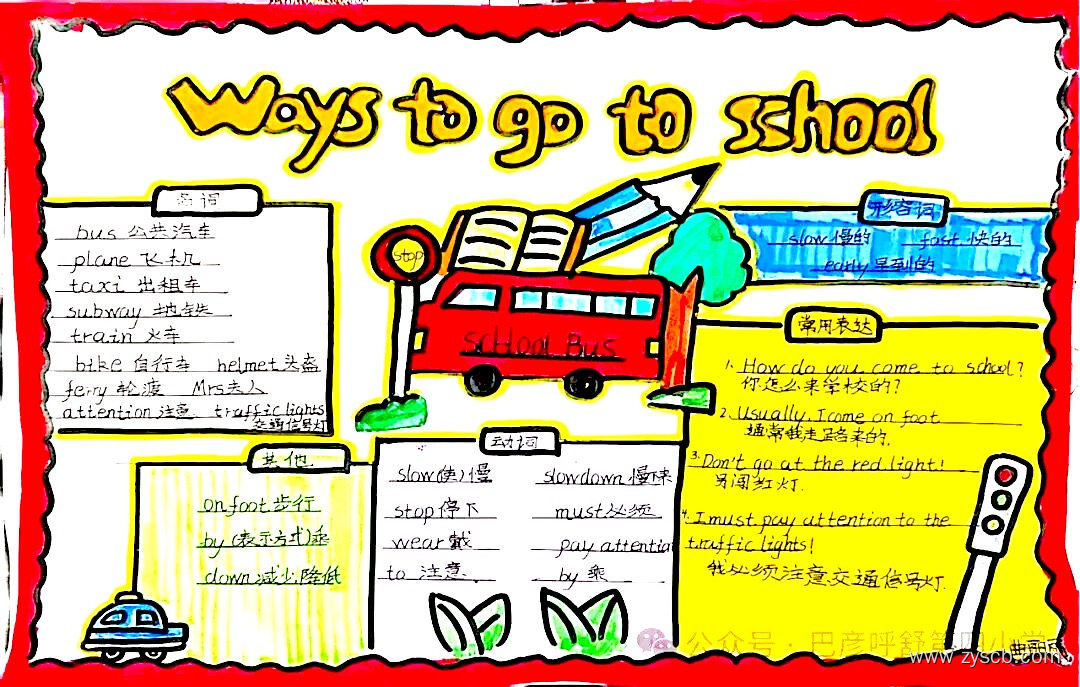 Ways to go to school
名词
bus 公共汽车
plane 飞机
taxi 出租车
subway 地铁
train 火车
bike 自行车 helmet 头盔
ferry 轮渡 Mrs 夫人
attention 注意 traffic lights
交通信号灯
stop
school Bus
形容词
slow 慢的 fast 快的
early 早到的
常用表达
1. How do you come to school?
你怎么来学校的?
2. Usually, I come on foot
通常我走路来的.
3. Don't go at the red light!
别闯红灯.
4. I must pay attention to the
traffic lights!
我必须注意交通信号灯.
其他
on foot 步行
by (表示方式)乘
down 减少,降低
动词
slow (使)慢 slow down 慢下来
stop 停下 must 必须
wear 戴 pay attention
to 注意 by 乘
公众号·巴彦呼舒第四小学
www.zyscb.com